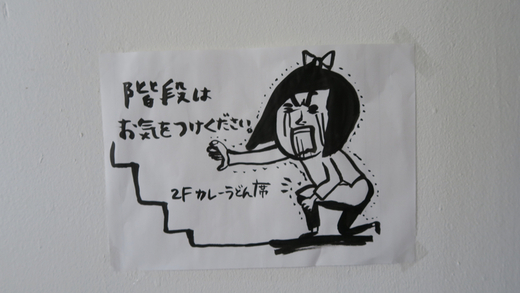 階段は
お気をつけください。
2F カレーうどん席